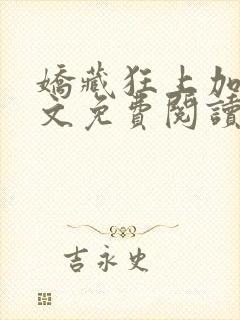 嬌藏狂上加
文免費閱讀
吉永史